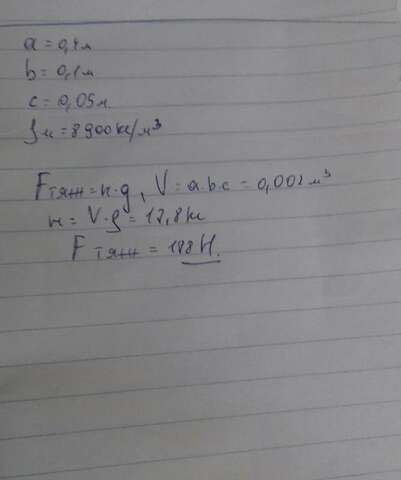 a = 0,4м
b = 0,1м
c = 0,05м.
ρм = 8900кг/м³
Fтяж = м·g, V = a·b·c = 0,002 м³
м = V·ρ = 17,8кг
Fтяж = 178Н.